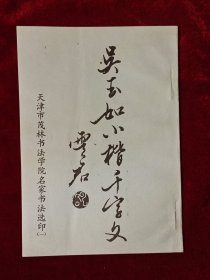 吴玉如小楷千字文
云君
天津市茂林书法学院名家书法选印(一)